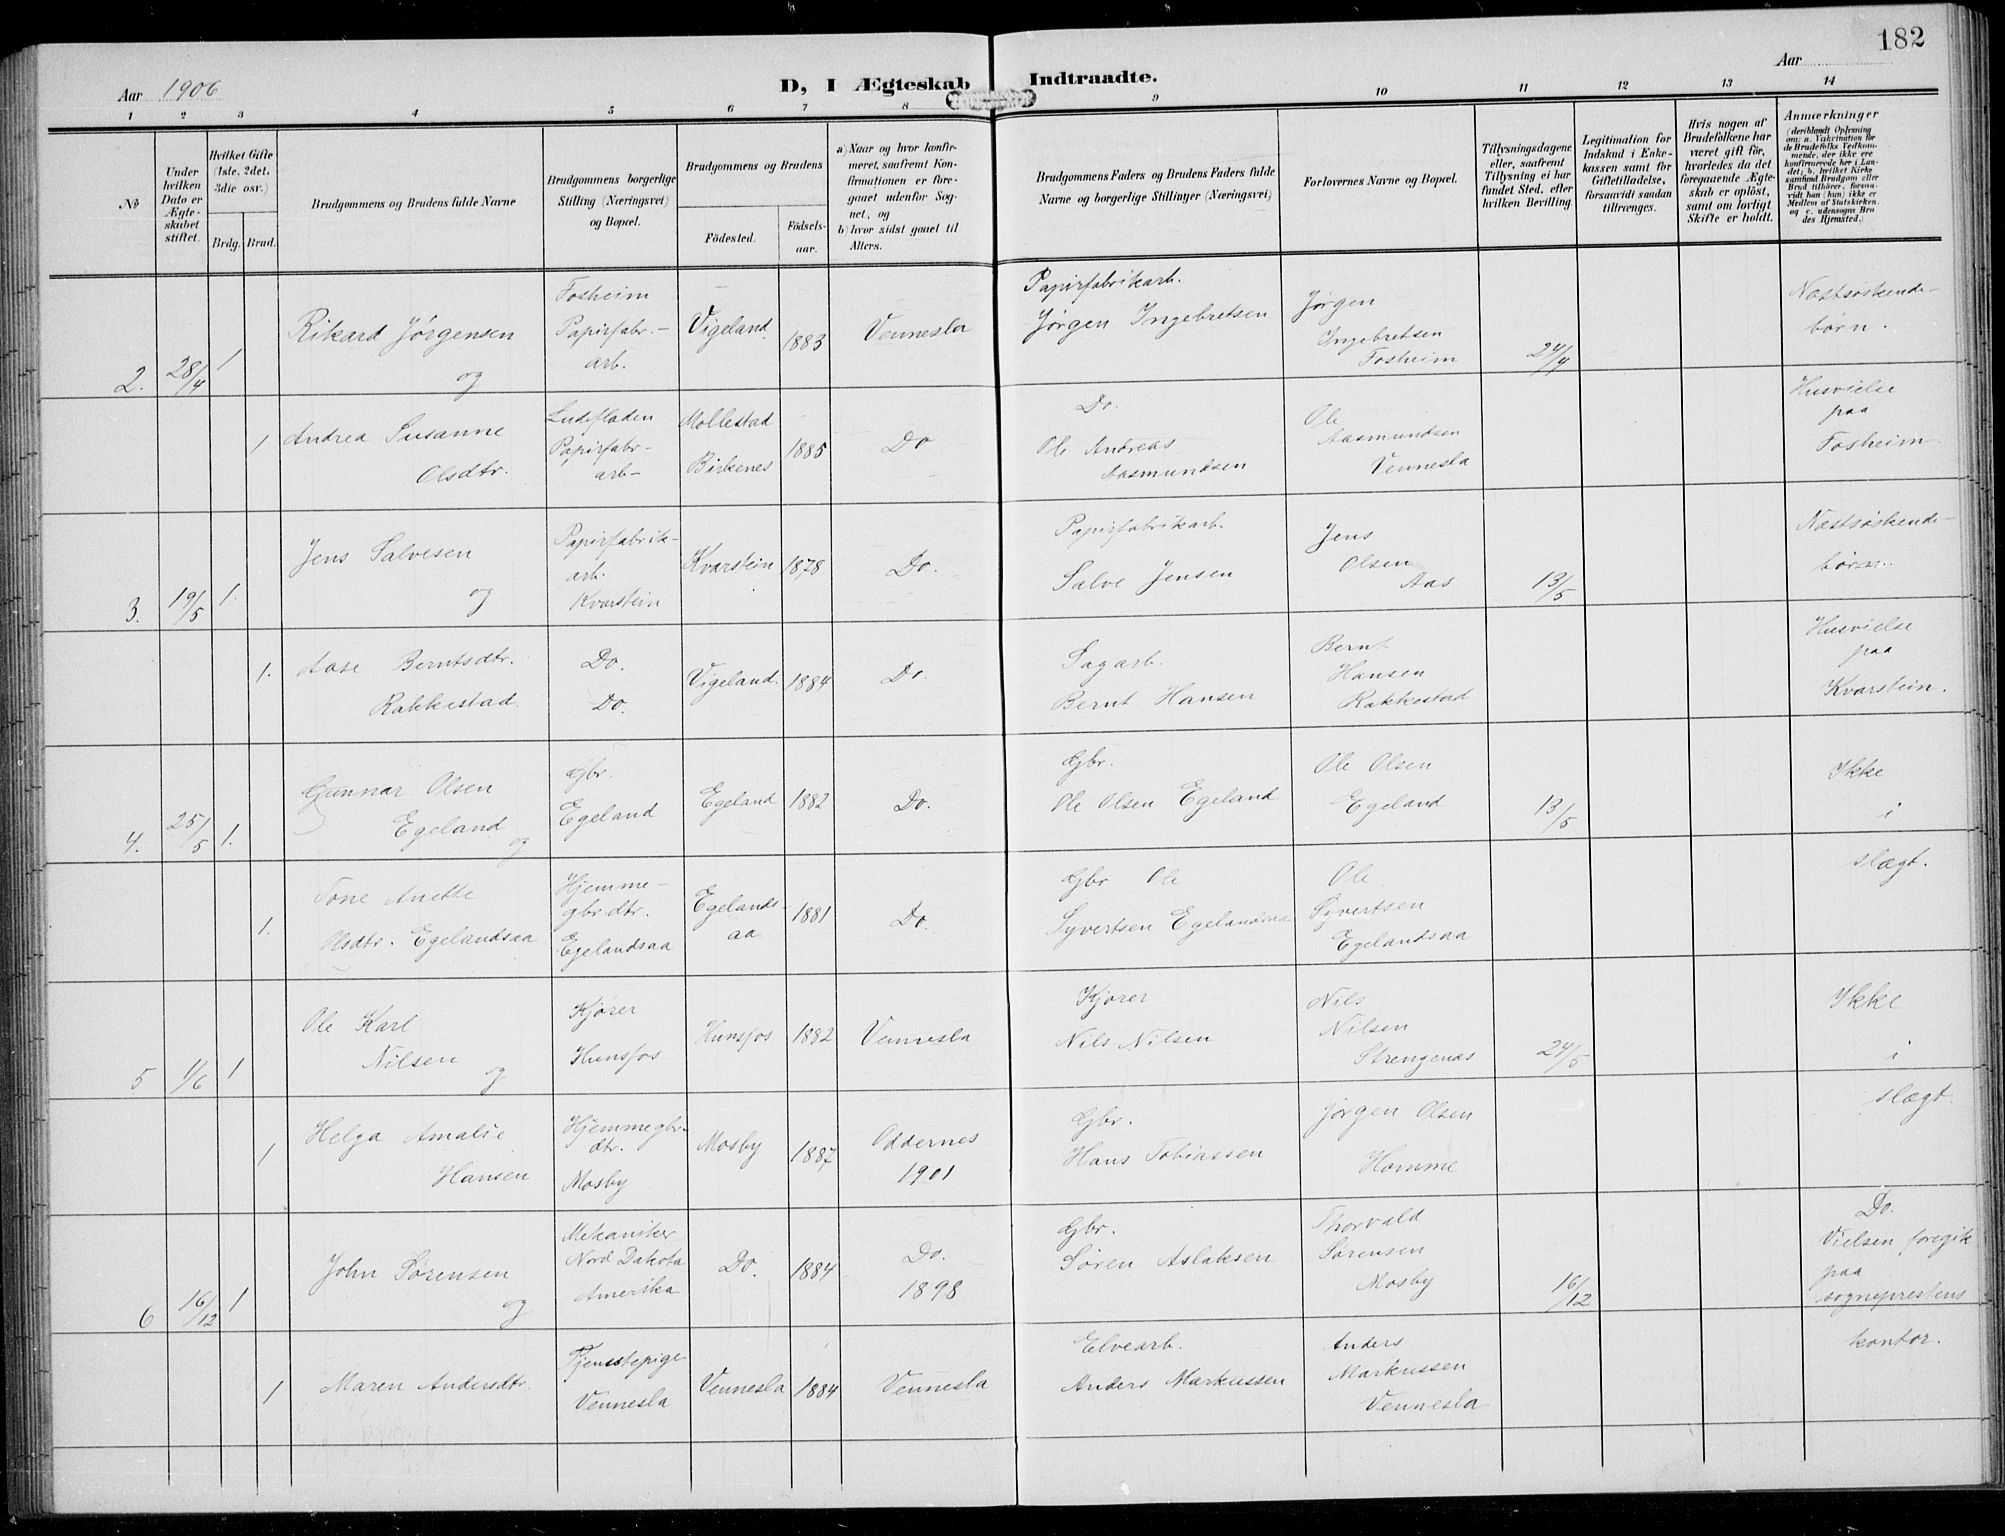 182
Aar 1906
D, I Ægteskab Indtraadte.
Aar
1 2 3 4 5 6 7 8 9 10 11 12 13 14
No
Under hvilken Dato er Ægteskabet stiftet.
Hvilket Gifte (1ste, 2det, 3die osv.)
Brdg. Brud.
Brudgommens og Brudens fulde Navne
Brudgommens borgerlige Stilling (Næringsvei) og Bopæl.
Brudgommens og Brudens
Födested.
Födsels-aar.
a) Naar og hvor konfirmeret, saafremt Konfirmationen er foregaaet udenfor Sognet, og
b) hvor sidst gaaet til Alters.
Brudgommens Faders og Brudens Faders fulde Navne og borgerlige Stillinger (Næringsvei)
Forlovernes Navne og Bopæl.
Tillysningsdagene eller, saafremt Tillysning ei har fundet Sted, efter hvilken Bevilling.
Legitimation for Indskud i Enkekassen samt for Giftetilladelse, forsaavidt saadan tiltrænges.
Hvis nogen af Brudefolkene har været gift för, hvorledes da det foregaaende Ægteskab er oplöst, samt om lovligt Skifte er holdt.
Anmærkninger
(deriblandt Oplysning om: a. Vakcination for de Brudefolks Vedkommende, der ikke ere konfirmerede her i Landet; b. hvilket Kirkesamfund Brudgom eller Brud tilhörer, forsaavidt han (hun) ikke er Medlem af Statskirken, og c. udensogns Brudes Hjemsted.)
2. 28/4 1 Rikard Jørgensen og
Fosheim Papirfabr.-arb.
Vigeland 1883 Vennesla
Papirfabrikarb. Jørgen Ingebretsen
Jørgen Ingebretsen Fosheim
24/4
Næstsøskende-børn.
1 Andrea Susanne Olsdtr.
Papirfabr-arb-
Mollestad Birkenes 1885 Do
Do. Ole Andreas Aasmundsen
Ole Aasmundsen Vennesla
Husvielse paa Fosheim.
3. 19/5 1. Jens Salvesen og
Papirfabrik-arb. Kvarstein
Kvarstein 1878 Do.
Papirfabrikarb. Salve Jensen
Jens Olsen Aas
13/5
Næstsøskende-børn.
1. Aase Berntsdtr. Rakkestad.
Do. Do.
Vigeland. 1884 Do.
Sagarb. Bernt Hansen
Bernt Hansen Rakkestad
Husvielse paa Kvarstein.
4. 25/5 1. Gunnar Olsen Egeland og
Gbr. Egeland
Egeland 1882 Do.
Gbr. Ole Olsen Egeland
Ole Olsen Egeland
13/5
Ikke i slægt.
1. Tone Anette Olsdtr. Egelandsaa
Hjemme-gbr.dtr. Egelandsaa
Egelands-aa 1881 Do.
Gbr Ole Syvertsen Egelandsaa
Ole Syvertsen Egelandsaa
5 1/6 1 Ole Karl Nilsen og
Kjører Hunsfos
Hunsfos 1882 Vennesla
Kjører Nils Nilsen
Nils Nilsen Strengenæs
24/5
Ikke i slægt.
1 Helga Amalie Hansen
Hjemmegbr.dtr. Mosby
Mosby 1887 Oddernes 1901
Gbr. Hans Tobiassen
Jørgen Olsen Homme
6 16/12 1 John Sørensen og
Mekaniker Nord Dakota Amerika
Do. 1884 Do. 1898
Gbr. Søren Aslaksen
Thorvald Sørensen Mosby
16/12
Do. Vielsen foregik paa sogneprestens kontor.
1 Maren Andersdtr.
Tjenestepige Vennesla
Vennesla 1884 Vennesla
Elvearb. Anders Markussen
Anders Markussen Vennesla